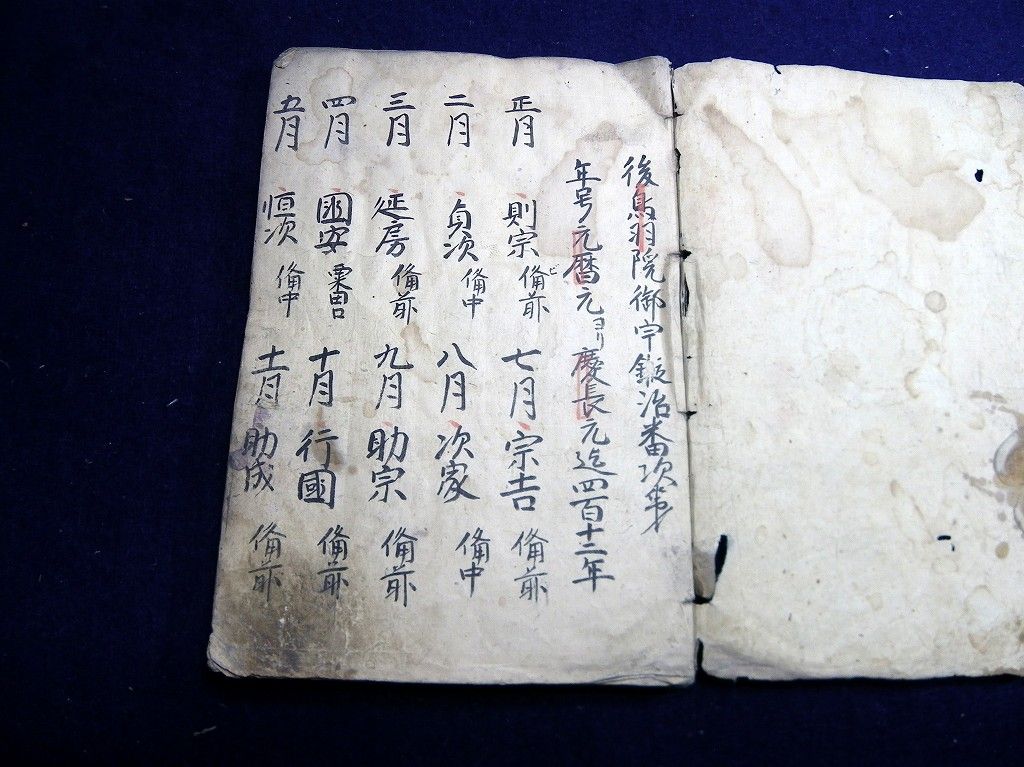 後鳥羽院御宇鍛冶番次第
年号元暦元ヨリ慶長元迄四百十二年
正月 則宗 備前 七月 宗吉 備前
二月 貞次 備中 八月 次家 備中
三月 延房 備前 九月 助宗 備前
四月 國安 粟田口 十月 行國 備前
五月 恒次 備中 十一月 助成 備前